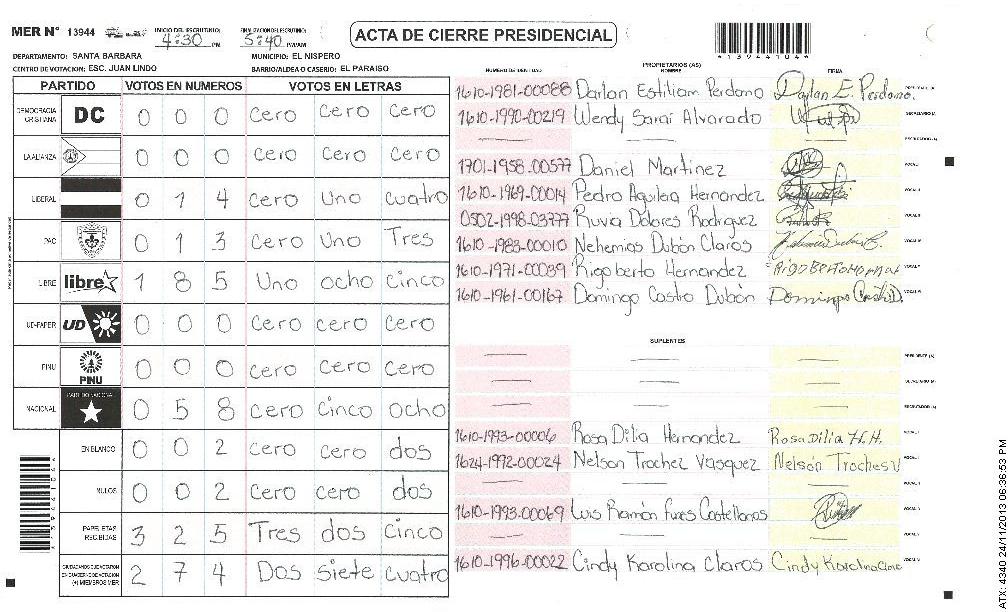 MER Nº 13944
INICIO DEL ESCRUTINIO: 4:30 PM
FINALIZACION DEL ESCRUTINIO: 5:40 PM/AM
ACTA DE CIERRE PRESIDENCIAL
DEPARTAMENTO: SANTA BARBARA MUNICIPIO: EL NISPERO
CENTRO DE VOTACION: ESC. JUAN LINDO BARRIO/ALDEA O CASERIO: EL PARAISO
PARTIDO VOTOS EN NUMEROS VOTOS EN LETRAS
DEMOCRACIA CRISTIANA DC 0 0 0 Cero Cero Cero
LA ALIANZA 0 0 0 Cero Cero Cero
LIBERAL 0 1 4 Cero Uno Cuatro
PAC 0 1 3 Cero Uno Tres
LIBRE libre 1 8 5 Uno ocho Cinco
UD-FAPER UD 0 0 0 Cero Cero Cero
PINU PINU 0 0 0 Cero Cero Cero
NACIONAL PARTIDO NACIONAL 0 5 8 Cero Cinco Ocho
EN BLANCO 0 0 2 Cero Cero dos
NULOS 0 0 2 Cero Cero dos
PAPELETAS RECIBIDAS 3 2 5 Tres dos Cinco
2 7 4 Dos Siete Cuatro
*13944104*
PROPIETARIOS (AS)
NUMERO DE IDENTIDAD NOMBRE FIRMA
1610-1981-00088 Darlan Estiliam Perdomo Darlan E. Perdomo.
1610-1990-00219 Wendy Sarai Alvarado SECRETARIO (A)
ESCRUTADOR (A)
1701-1958-00577 Daniel Martinez VOCAL I
1610-1969-00014 Pedro Aguilea Hernandez VOCAL II
0502-1998-03777 Ruvia Dolores Rodriguez VOCAL III
1610-1983-00010 Nehemias Dubón Claros VOCAL IV
1610-1971-00039 Rigoberto Hernandez VOCAL V
1610-1961-00167 Domingo Castro Dubón Domingo Castro D. VOCAL VI
SUPLENTES
PRESIDENTE (A)
SECRETARIO (A)
ESCRUTADOR (A)
1610-1993-00006 Rosa Dilia Hernandez Rosa Dilia H.H. VOCAL I
1624-1992-00024 Nelson Trochez Vasquez Nelson Troches V
1610-1993-00069 Luis Ramón Funes Castellanos
1610-1996-00022 Cindy Karolina Claros Cindy Karolina
ATX: 4340 24/11/2013 06:36:53 PM